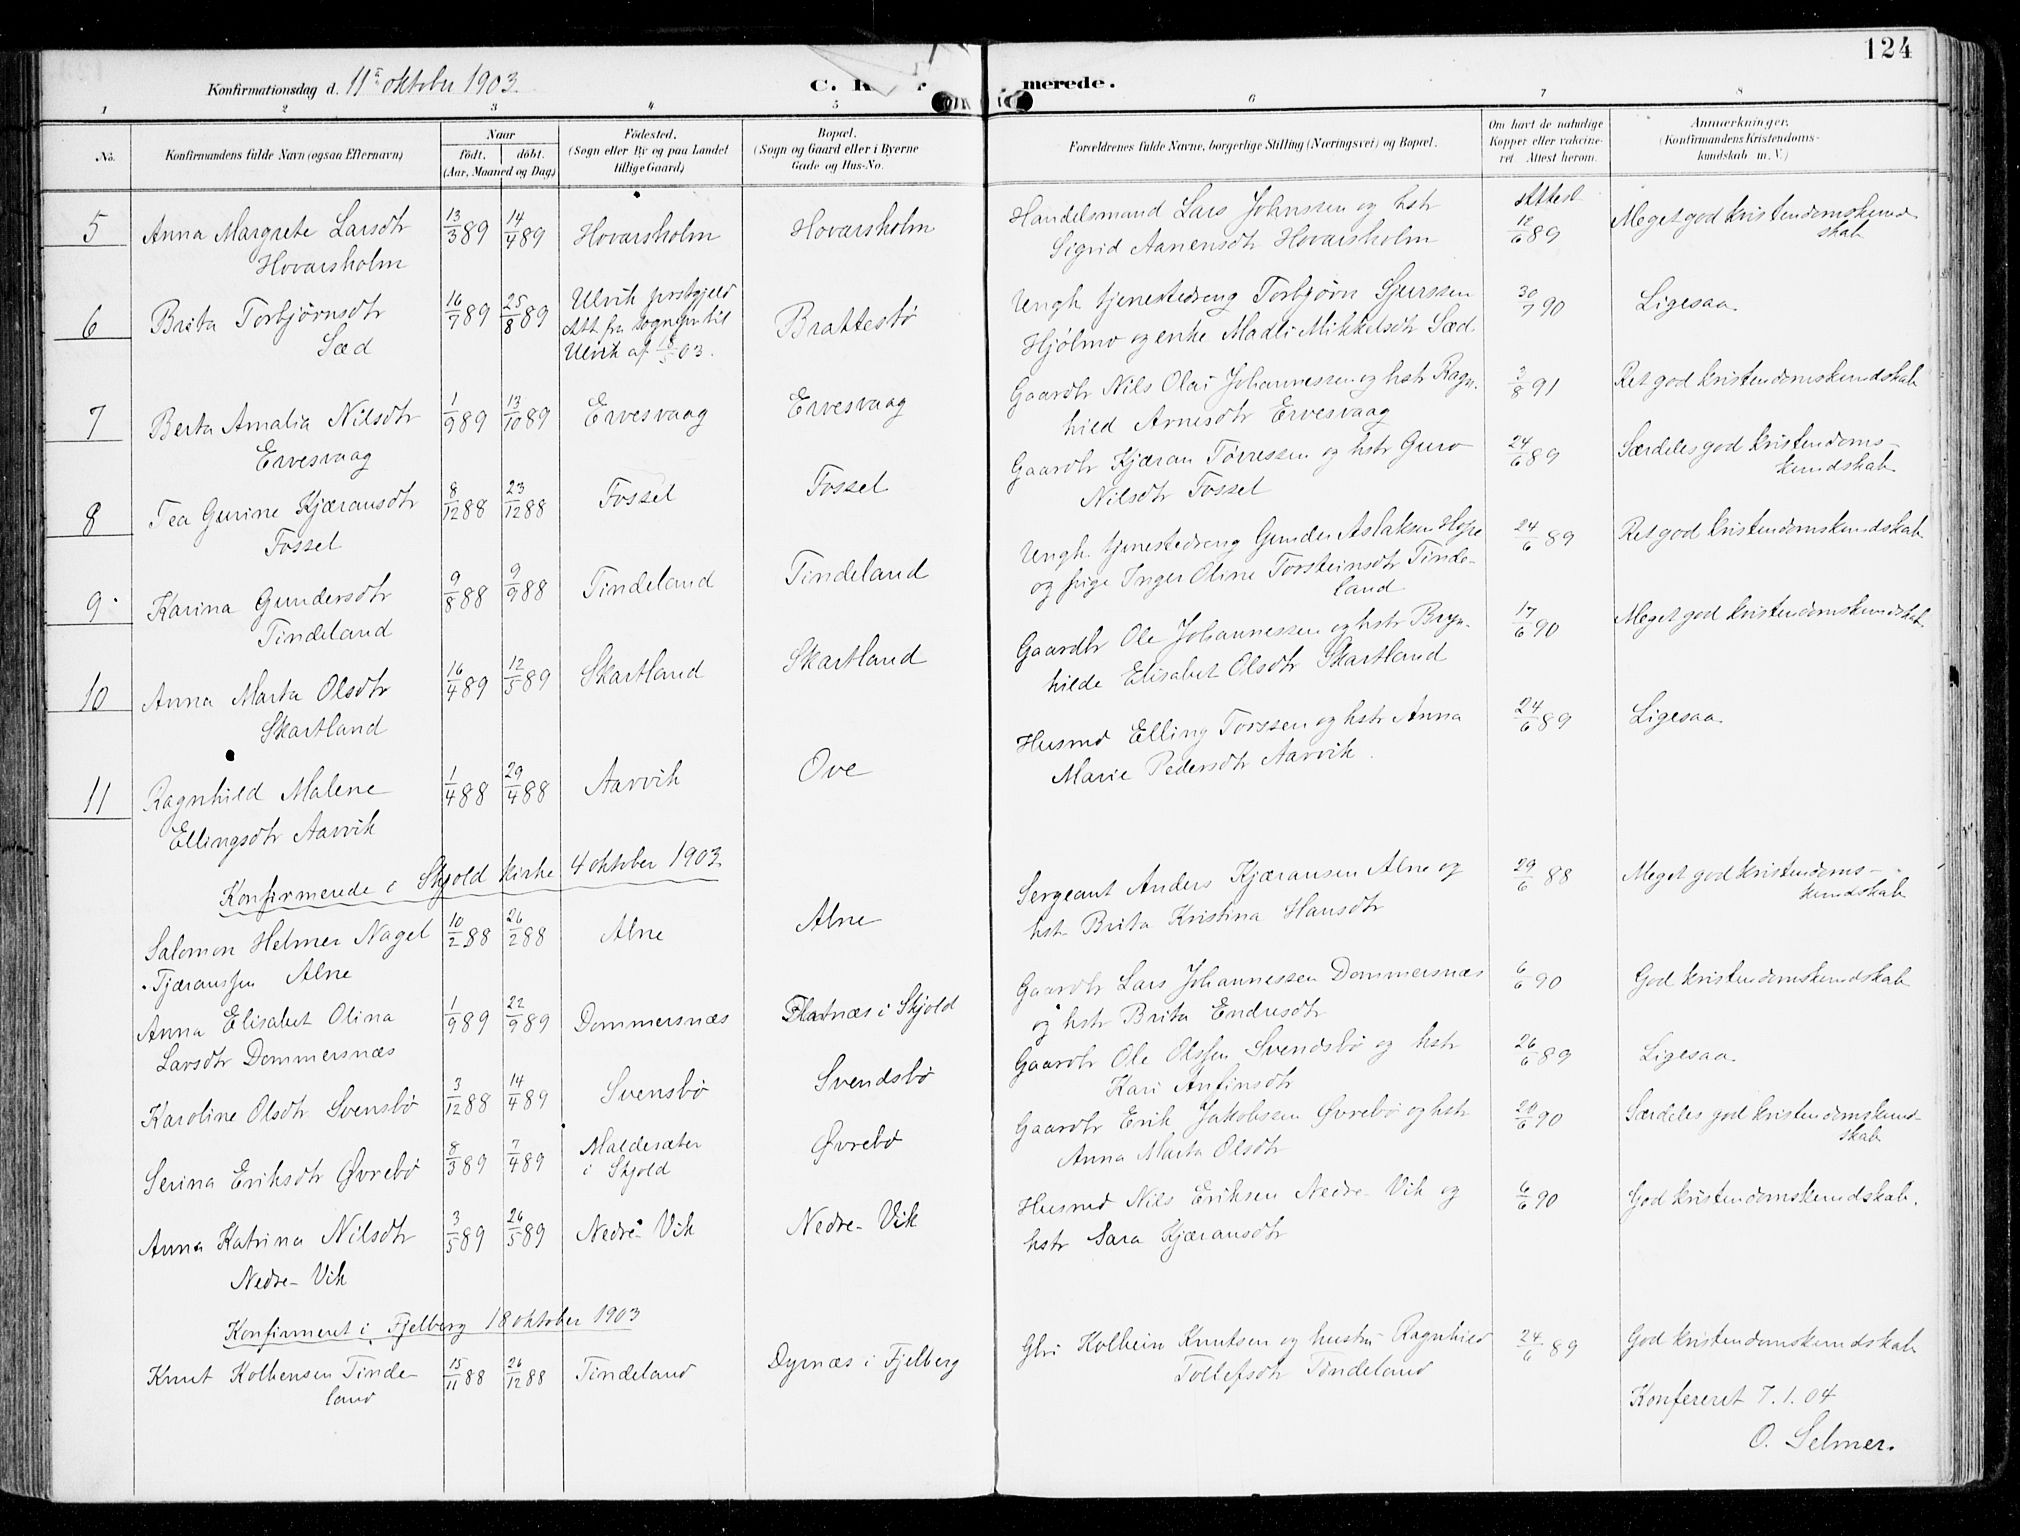 124
Konfirmationsdag d. 11te oktober 1903.
C. K
merede.
1 2 3 4 5 6 7 8
No.
Konfirmandens fulde Navn (ogsaa Efternavn)
Naar
født. døbt.
(Aar, Maaned og Dag)
Fødested.
(Sogn eller By og paa Landet
tillige Gaard)
Bopæl.
(Sogn og Gaard eller i Byerne
Gade og Hus-No.
Forældrenes fulde Navne, borgerlige Stilling (Næringsvei) og Bopæl.
Om havt de naturlige
Kopper eller vakcine-
ret Attest herom.
Anmærkninger.
(Konfirmandens Kristendoms-
kundskab m. V.)
5 Anna Margrete Larsdtr 13/3 89 14/4 89 Hovarsholm Hovarsholm Handelsmand Lars Johnssen og hstr Attest 18/6 89 Meget god kristendomskund
Hovarsholm Sigrid Aanensdtr Hovarsholm skab
6 Brita Torbjørnsdtr 16/7 89 25/8 89 Ulvik prstgjeld Brattesbø Ungk. tjenestedreng Torbjørn Sjurssen 30/7 90 Ligesaa.
Sæd Att fra sognepr til Hjølmo og enke Madli Mikkelsdtr Sæd.
Ulvik af 18/5 03.
7 Berta Amalia Nilsdtr 1/9 89 13/10 89 Ervesvaag Ervesvaag Gaardbr Nils Olai Johannessen og hstr Ragn- 3/8 91 Ret god kristendomskundskab
Ervesvaag hild Arnesdtr Ervesvaag
8 Tea Gurine Kjæransdtr 8/12 88 23/12 88 Fossel Fossel Gaardbr Kjæran Tørressen og hstr Guro 24/6 89 Særdeles god kristendoms-
Fossel Nilsdtr Fossel kundskab
9 Karina Gundersdtr 9/8 88 9/9 88 Tindeland Tindeland Ungk. tjenestedreng Gunder Aslaksen 24/6 89 Ret god kristendomskundskab
Tindeland og pige Inger Oline Torsteinsdtr Tinde-
land
10 Anna Marta Olsdtr 16/4 89 12/5 89 Skartland Skartland Gaardbr Ole Johannessen og hstr Bryn- 17/6 90 Meget god kristendomskundskab
Skartland hilde Elisabet Olsdtr Skartland
11 Ragnhild Malene 1/4 88 29/4 88 Aarvik Ove Husmd Elling Torssen og hstr Anna 24/6 89 Ligesaa
Ellingsdtr Aarvik Marie Pedersdtr Aarvik.
Konfirmerede i Skjold kirke 4 oktober 1903.
Salomon Helmer Nagel 10/2 88 26/2 88 Alne Alne Sergeant Anders Kjæransen Alne og 29/6 88 Meget god kristendoms-
Tjæranssen Alne hst Brita Kristina Hansdtr kundskab
Anna Elisabet Olina 1/9 89 22/9 89 Dommersnæs Flatnæs i Skjold Gaardbr Lars Johannessen Dommersnæs 6/6 90 God kristendomskundskab
Larsdtr Dommersnæs og hstr Brita Endresdtr
Karoline Olsdtr Svensbø 3/12 88 14/4 89 Svensbø Svendsbø Gaardbr Ole Olssen Svendsbø og hstr 26/6 89 Ligesaa.
Kari Antinsdtr
Serina Eriksdtr Øvrebø 8/3 89 7/4 89 Maldesæter Øvrebø Gaardbr Erik Jakobssen Øvrebø og hstr /6 90 Særdeles god kristendomskund-
i Skjold Anna Marta Olsdtr skab
Anna Katrina Nilsdtr 3/5 89 26/5 89 Nedre Vik Nedre-Vik Husmd Nils Eriksen Nedre-Vik og 6/6 90 God kristendomskundskab.
Nedre-Vik hstr Sara Kjæransdtr
Konfirmeret i Fjelberg 18 oktober 1903
Knut Kolbensen Tinde- 15/11 88 26/12 88 Tindeland Dyrnæs i Fjelberg Gbr Kolbein Knutsen og hustru Ragnhild 24/6 89 God kristendomskundskab
land Tollefsdtr Tindeland
Konfereret 7.1.04
O. Selmer.